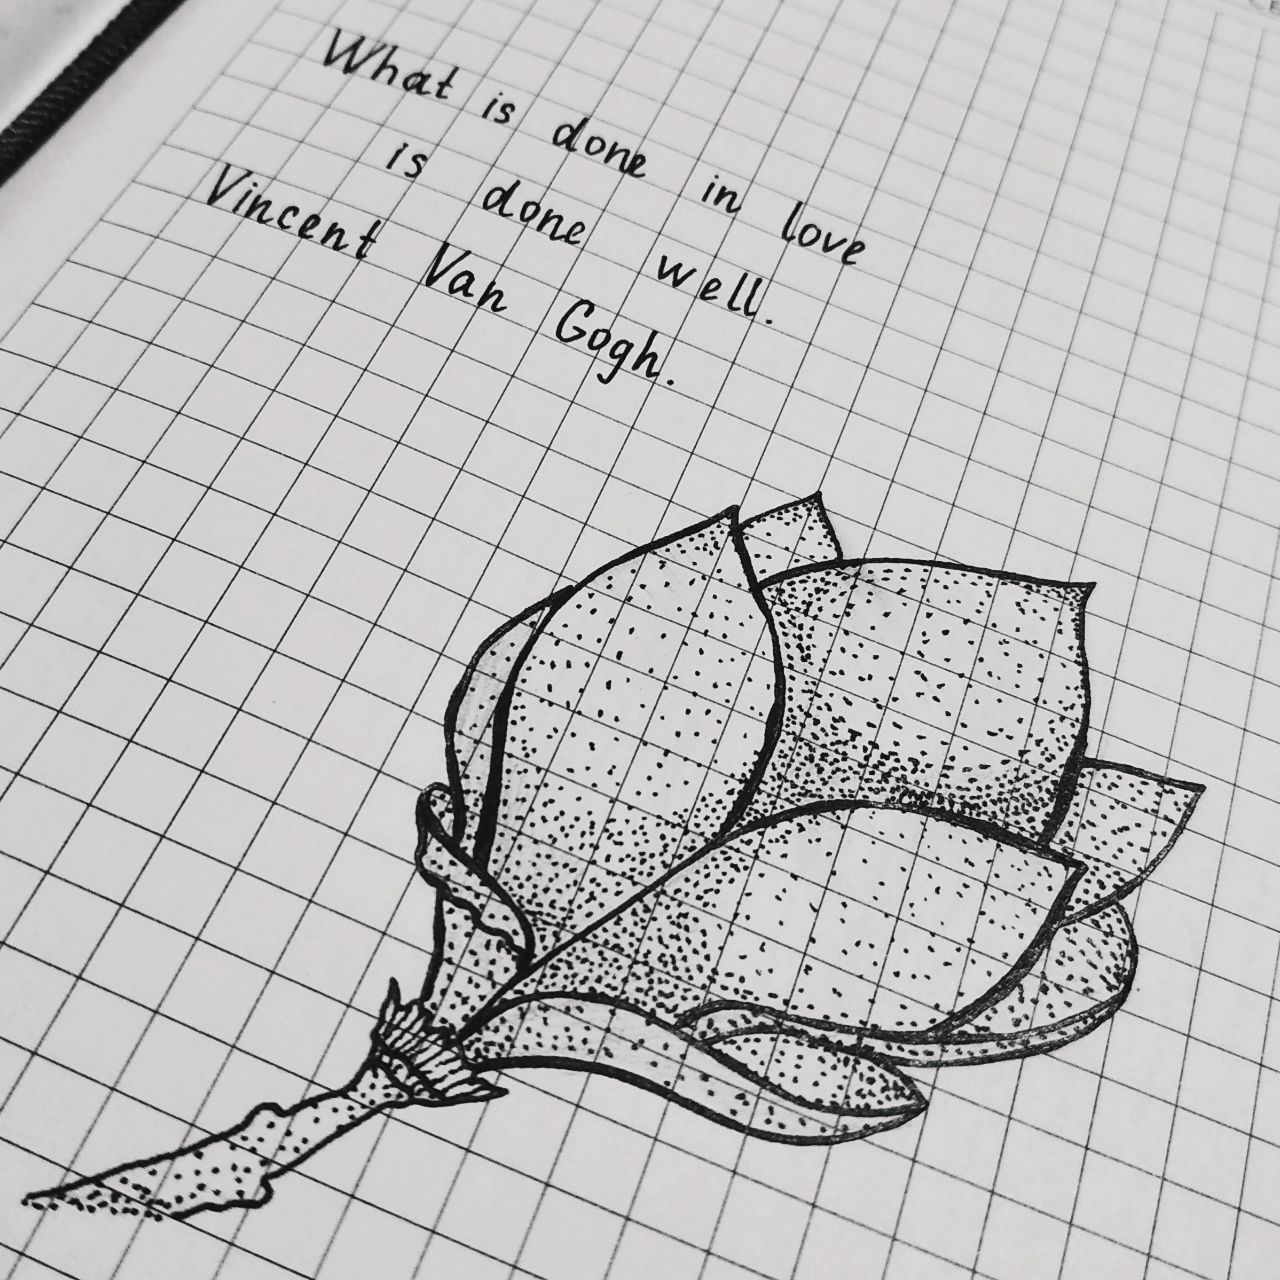 What is done in love
is done well.
Vincent Van Gogh.